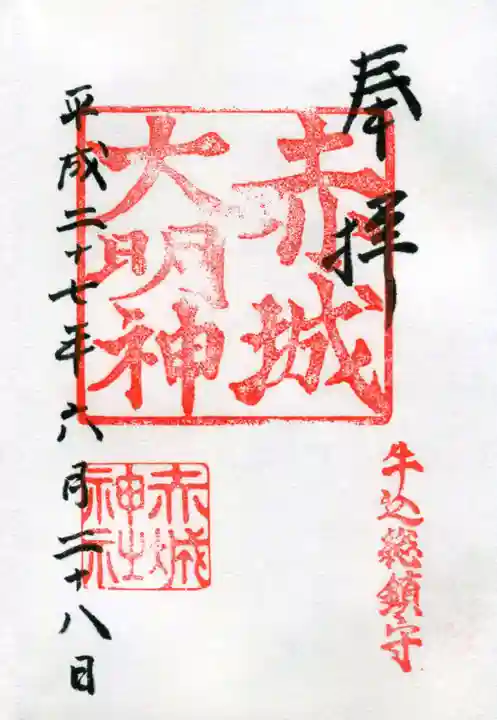 奉拝
牛込総鎮守
赤城
大明神
赤城
神社
平成二十七年六月二十八日